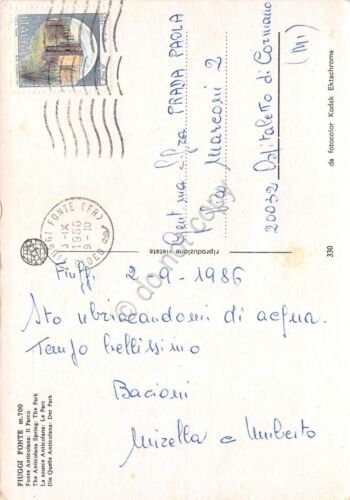 ITALIA
450
FIUGGI FONTE (FR)
3-IX
1986
9-10
Gent.ma Sig.ra PRADA PAOLA
P.za Marconi 2
20032 Ospitaletto di Cormano
(MI)
da fotocolor Kodak Ektachrome
330
riproduzione vietata
Fiuggi 2-9-1986
Sto ubriacandomi di acqua.
Tempo bellissimo
Bacioni
Mirella e Umberto
FIUGGI FONTE m. 700
Fonte Anticolana: Il Parco
The Anticolana Spring: The Park
La source Anticolana: Le Parc
Die Quelle Anticolana: Der Park